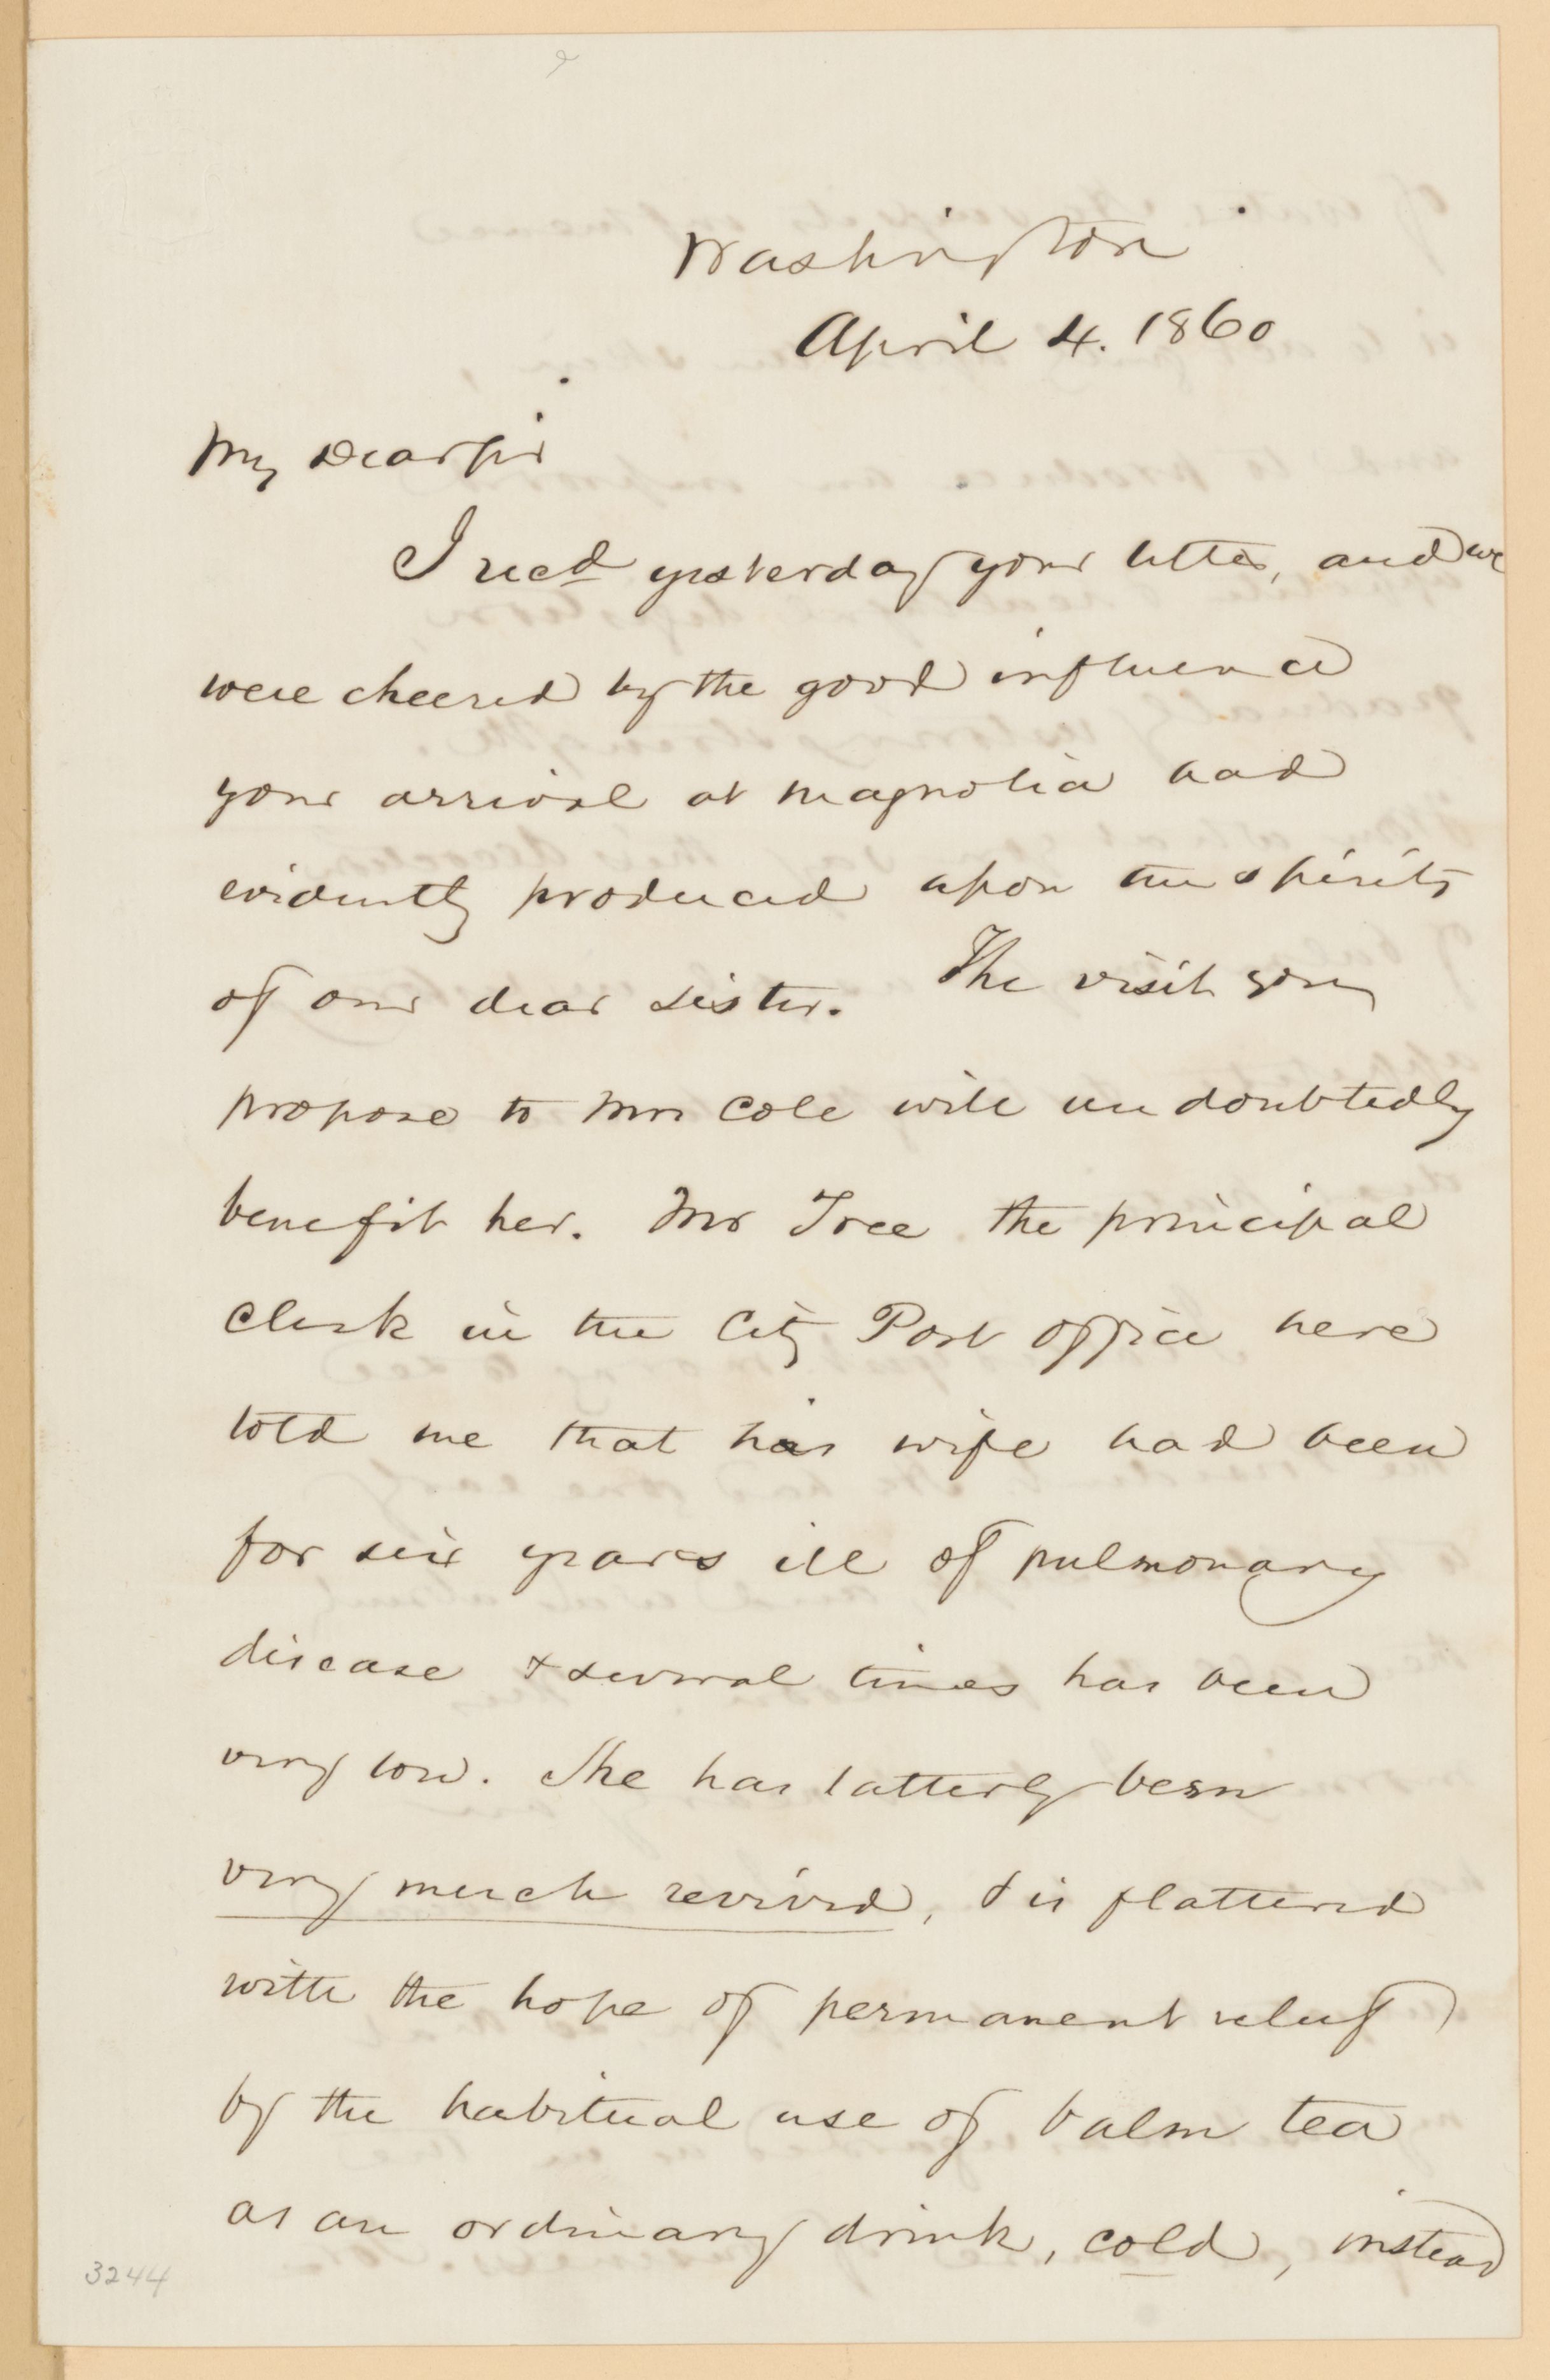 Washington
April 4. 1860
My Dear Sir
I recd yesterday your letter, and we
were cheered by the good influence
your arrival at Magnolia had
evidently produced upon the spirits
of our dear sister. The visit you
propose to Mrs Cole will undoubtedly
benefit her. Mr Tree the principal
clerk in the City Post office here
told me that his wife had been
for six years ill of pulmonary
disease & several times has been
very low. She has latterly been
very much revived, & is flattered
with the hope of permanent relief
by the habitual use of balm tea
as an ordinary drink, cold, instead
3244